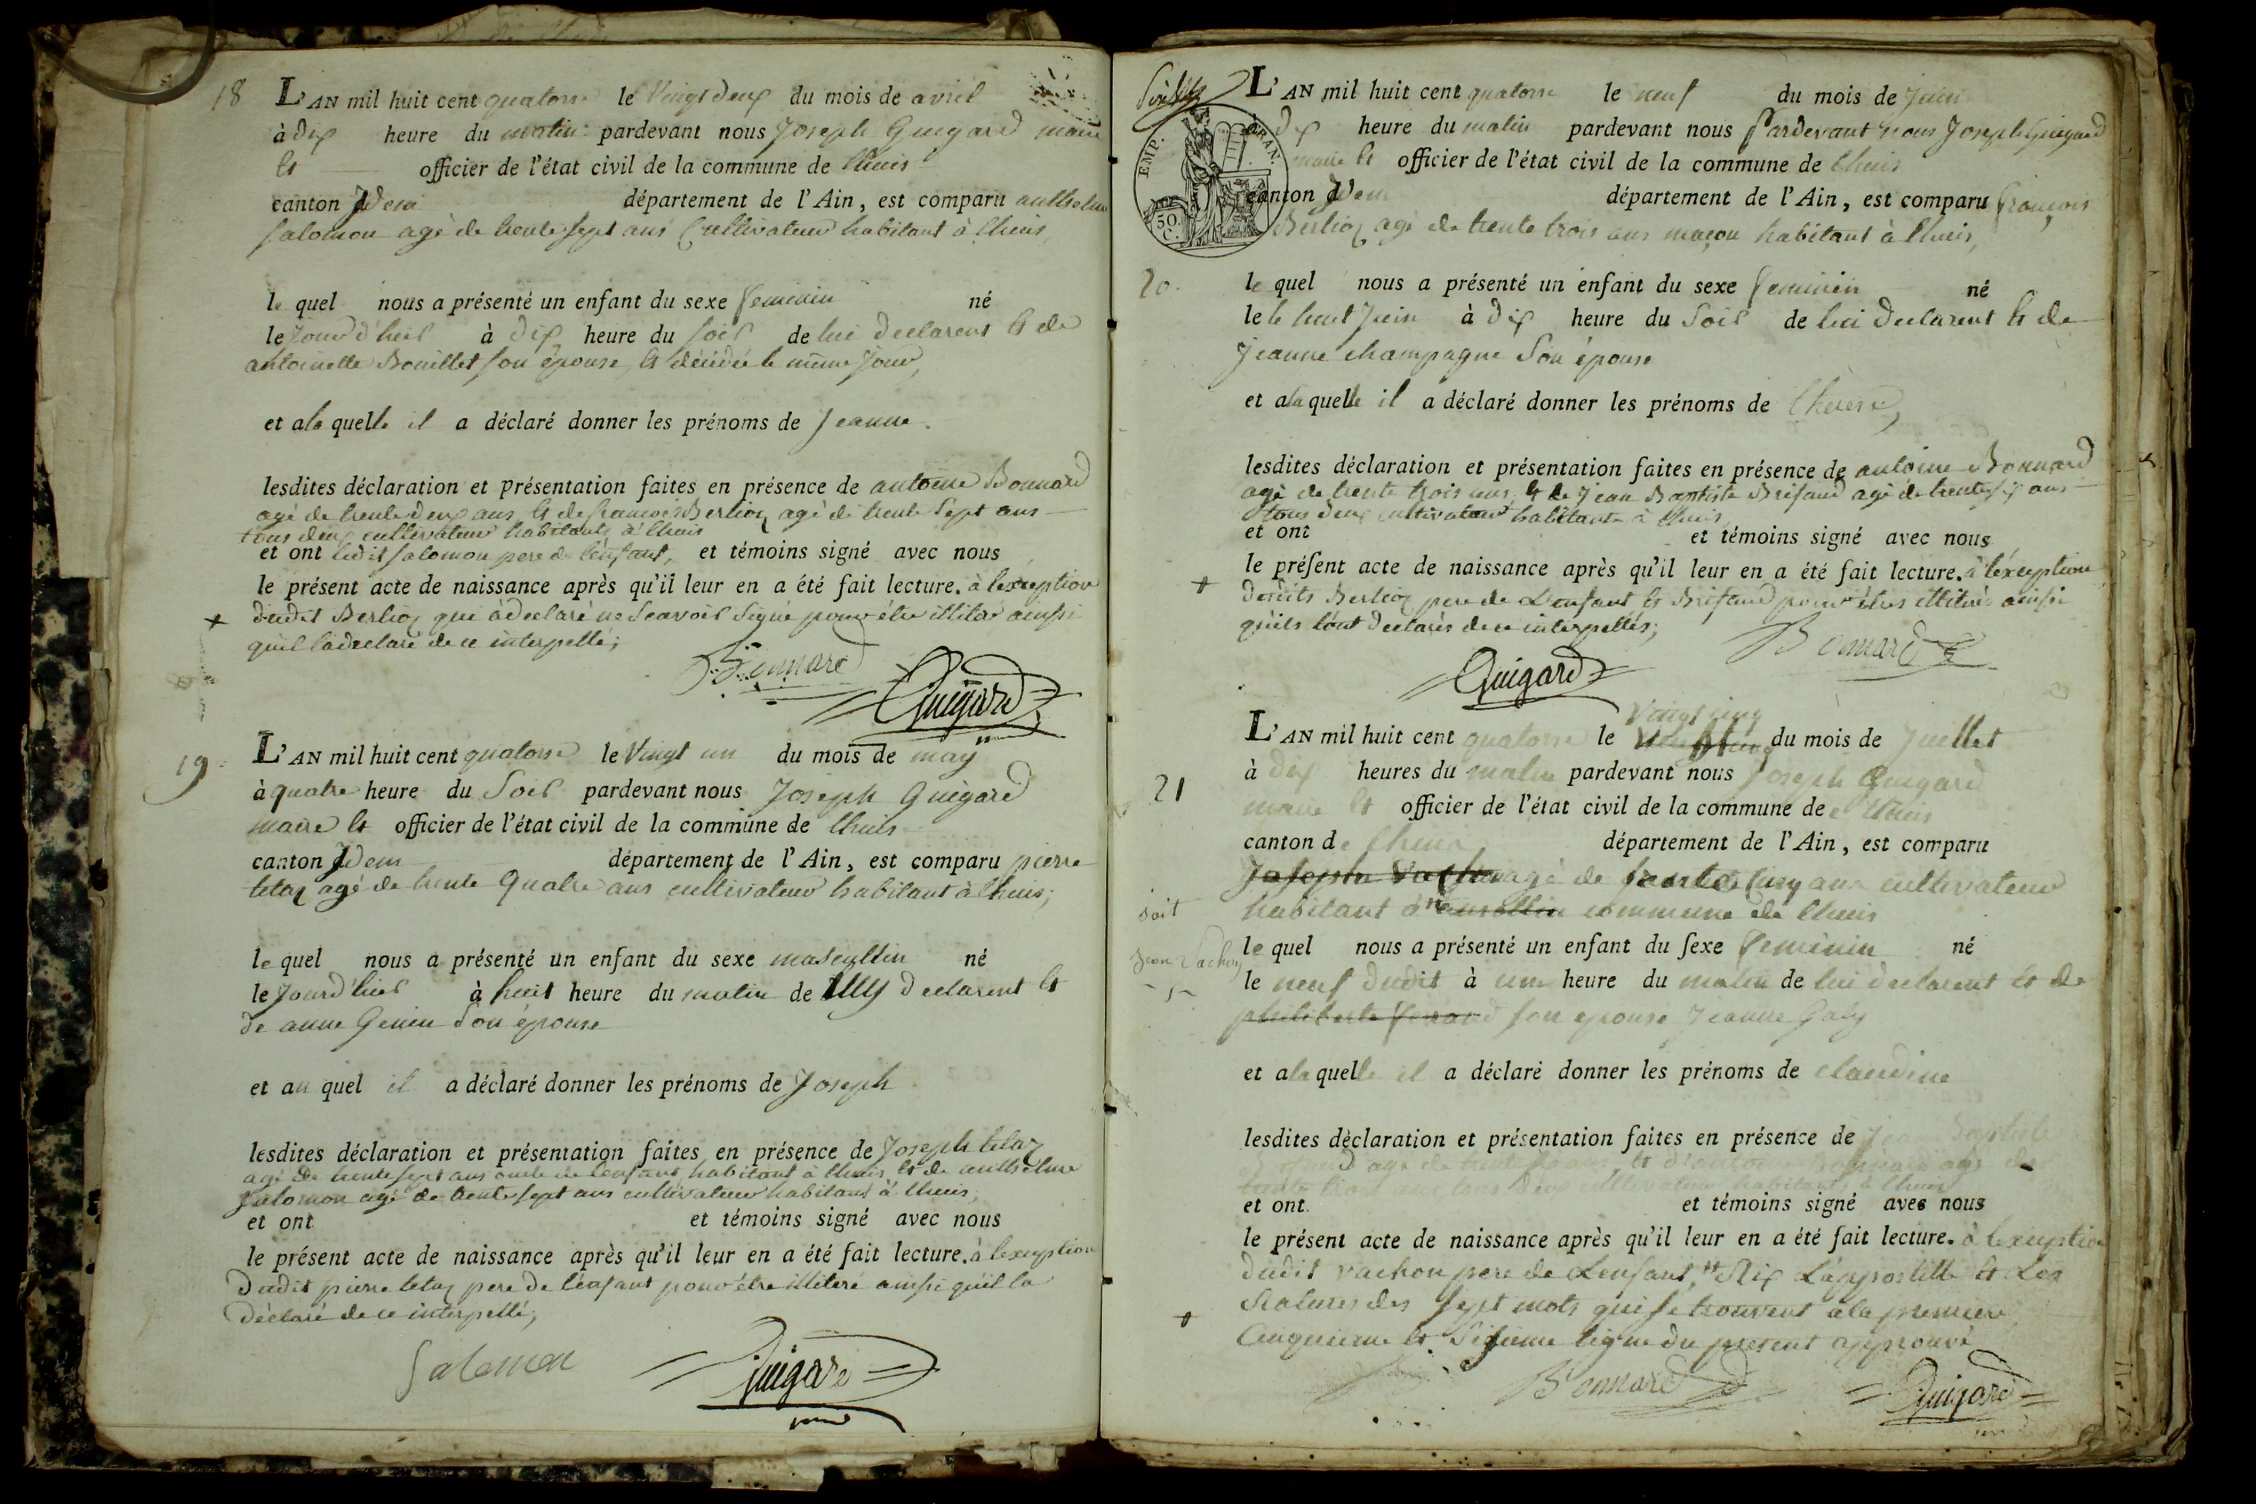 18
L'AN mil huit cent quatorze le Vingt deux du mois de avril
à dix heure du matin pardevant nous Joseph Guigard maire
et officier de l'état civil de la commune de lhuis
canton Idem département de l'Ain, est comparu anthelme
Salomon agé de trente sept ans Cultivateur habitant à lhuis,
le quel nous a présenté un enfant du sexe feminin né
le Jourd'huis à dix heure du soir de lui declarent et de
antoinette Bouillet son épouse, et décédée le même jour,
et ala quelle il a déclaré donner les prénoms de Jeanne.
lesdites déclaration et présentation faites en présence de antoine Bonnard
agé de trente deux ans et de francois Berlioz agé de trente Sept ans
tous deux cultivateur habitants à lhuis
et ont ledit Salomon pere de l'enfant, et témoins signé avec nous
le présent acte de naissance après qu'il leur en a été fait lecture. à lexception
dudit Berlioz qui à declaré ne Scavoir Signé pour être illitéré ainsi
quil la declaré de ce interpellé;
Bonnard
Guigard
19
L'AN mil huit cent quatorze le Vingt un du mois de may
à quatre heure du Soir pardevant nous Joseph Guigard
maire et officier de l'état civil de la commune de lhuis
canton Idem département de l'Ain, est comparu pierre
tetaz agé de trente quatre ans cultivateur habitant à lhuis;
le quel nous a présenté un enfant du sexe masculin né
le Jourd'huis à huit heure du matin de luy declarent et
de anne Genin Son épouse
et au quel il a déclaré donner les prénoms de Joseph
lesdites déclaration et présentation faites en présence de Joseph tetaz
agé de trente sept ans oncle de lenfant habitant à lhuis et de anthelme
Salomon agé de trente sept ans cultivateur habitant à lhuis,
et ont et témoins signé avec nous
le présent acte de naissance après qu'il leur en a été fait lecture. à lexception
dudit pierre tetaz pere de l'enfant pour être illiteré ainsi quil la
déclaré de ce interpellé;
Salomon
Guigard
EMP. FRAN.
50 C.
L'AN mil huit cent quatorze le neuf du mois de Juin
à dix heure du matin pardevant nous Pardevant nous Joseph Guigard
maire et officier de l'état civil de la commune de lhuis
canton Idem département de l'Ain, est comparu françois
Berlioz agé de trente trois ans maçon habitant à lhuis,
20.
le quel nous a présenté un enfant du sexe feminin né
le le huit Juin à dix heure du Soir de lui declarent et de
Jeanne champagne Son épouse
et ala quelle il a déclaré donner les prénoms de therese,
lesdites déclaration et présentation faites en présence de antoine Bonnard
agé de trente trois ans et de Jean Baptiste Brifaud agé de trente six ans
tous deux cultivateur habitants à lhuis,
et ont et témoins signé avec nous
le présent acte de naissance après qu'il leur en a été fait lecture. à l'exception
desdits Berlioz pere de L'enfant et Brifaud pour êtres illiterés ainsi
qu'ils l'ont declarés de ce interpellés;
Bonnard
Guigard
Vingt cinq
L'AN mil huit cent quatorze le du mois de Juillet
21
à dix heures du matin pardevant nous Joseph Guigard
maire et officier de l'état civil de la commune de lhuis
canton de lhuis département de l'Ain, est comparu
Joseph Vachon agé de cinq ans cultivateur
habitant à commune de lhuis
soit
Jean Vachon
le quel nous a présenté un enfant du sexe feminin né
le neuf dudit à une heure du matin de lui declarent et de
philiberte son epouse Jeanne Galy
et ala quelle il a déclaré donner les prénoms de claudine
lesdites déclaration et présentation faites en présence de Jean Baptiste
Brifaud agé de trente ans et d'antoine Bonnard agé de
trente trois ans tous deux cultivateur habitants à lhuis
et ont et témoins signé avec nous
le présent acte de naissance après qu'il leur en a été fait lecture. à lexception
dudit vachon pere de Lenfant, L'appostille et Les
Ratures des Sept mots qui se trouvent a la premiere
Cinquieme et Sixieme ligne du present approuvé
Bonnard
Guigard